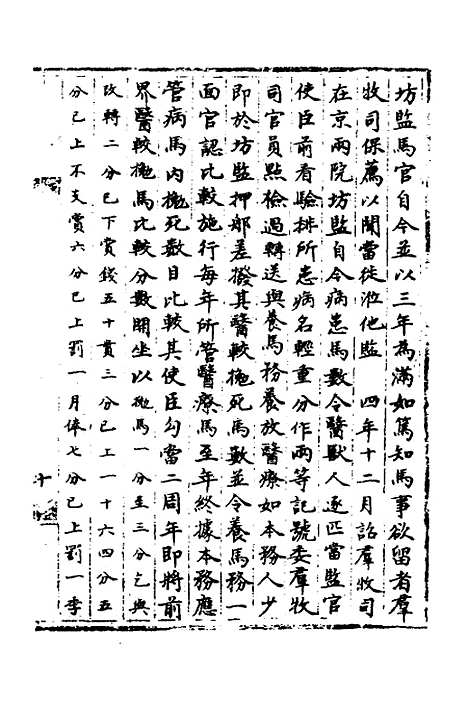 坊監馬官自今並以三年為滿如篤知馬事欲留者羣
牧司保薦以聞當徙涖他監　四年十二月詔羣牧司
在京兩院坊監自今病患馬數令醫獸人逐匹當監官
使臣前看驗排所患病名輕重分作兩等記號委羣牧
司官員點檢過轉送與養馬務養放醫療如本務人少
即於坊監押那差撥其醫較拋死馬數並令養馬務一
面官認比較施行每年所管醫療馬至年終據本務應
管病馬內拋死數目比較其使臣勾當二周年即將前
界醫較拋馬比較分數開坐以拋馬一分至三分已與
改轉二分已下賞錢五十貫三分已上一十六四分五
分已上不支賞六分已上罰一月俸七分已上罰一季
十